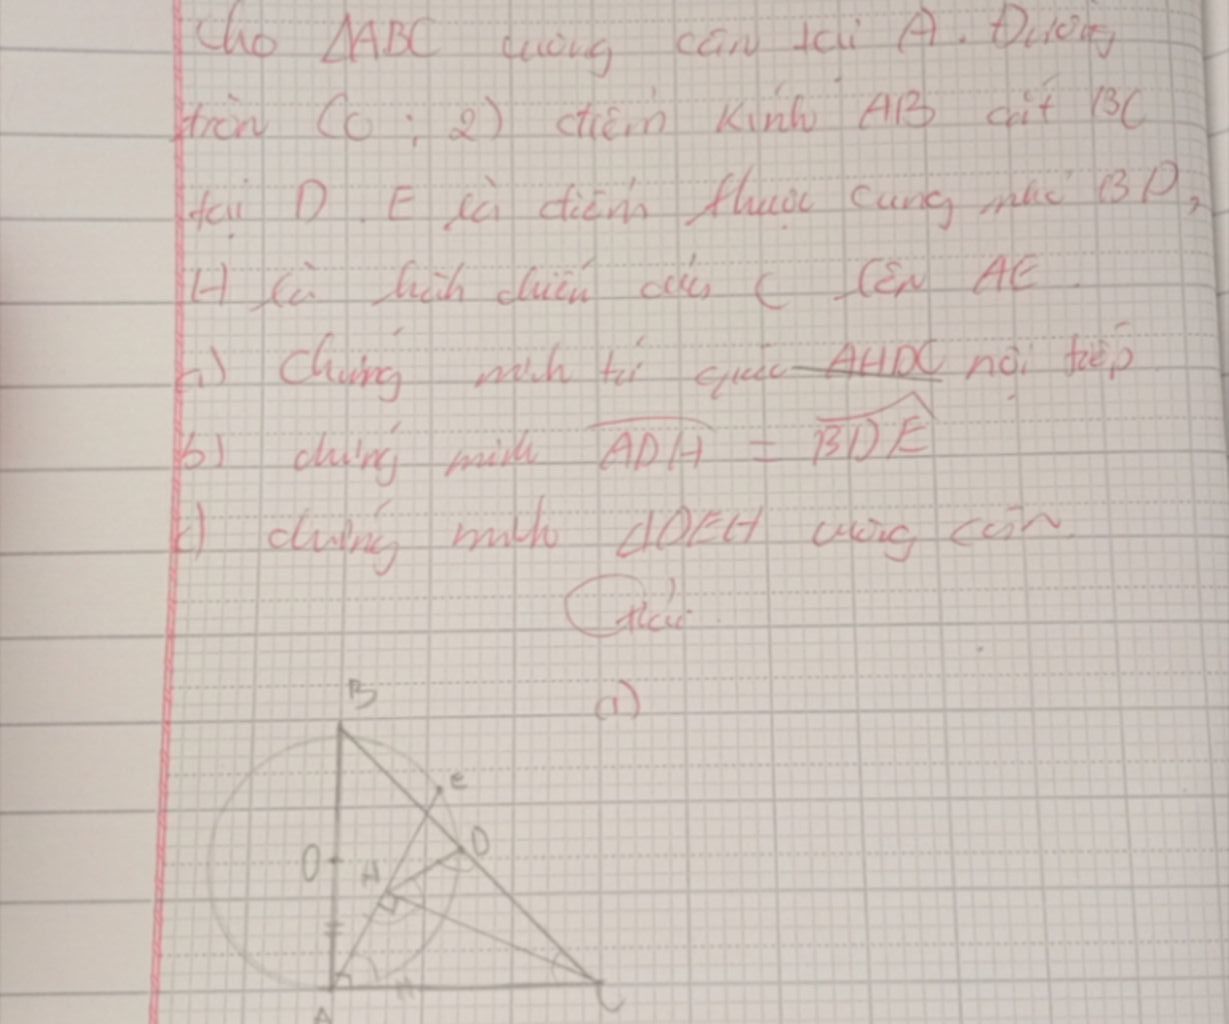 Cho ΔABC vuông cân tại A. Đường
tròn (O; 2) điểm Kính AB cắt BC
tại D. E là điểm thuộc cung nhỏ BD,
H là hình chiếu của C lên AE.
a) Chứng minh tứ giác AHDC nội tiếp
b) chứng minh ADH = BDE
c) chứng minh ΔDEH vuông cân
Giải
a)
B
E
O
H
D
A
C